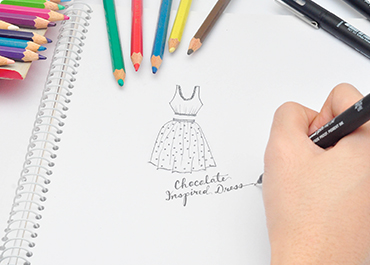 Chocolate
Inspired Dress